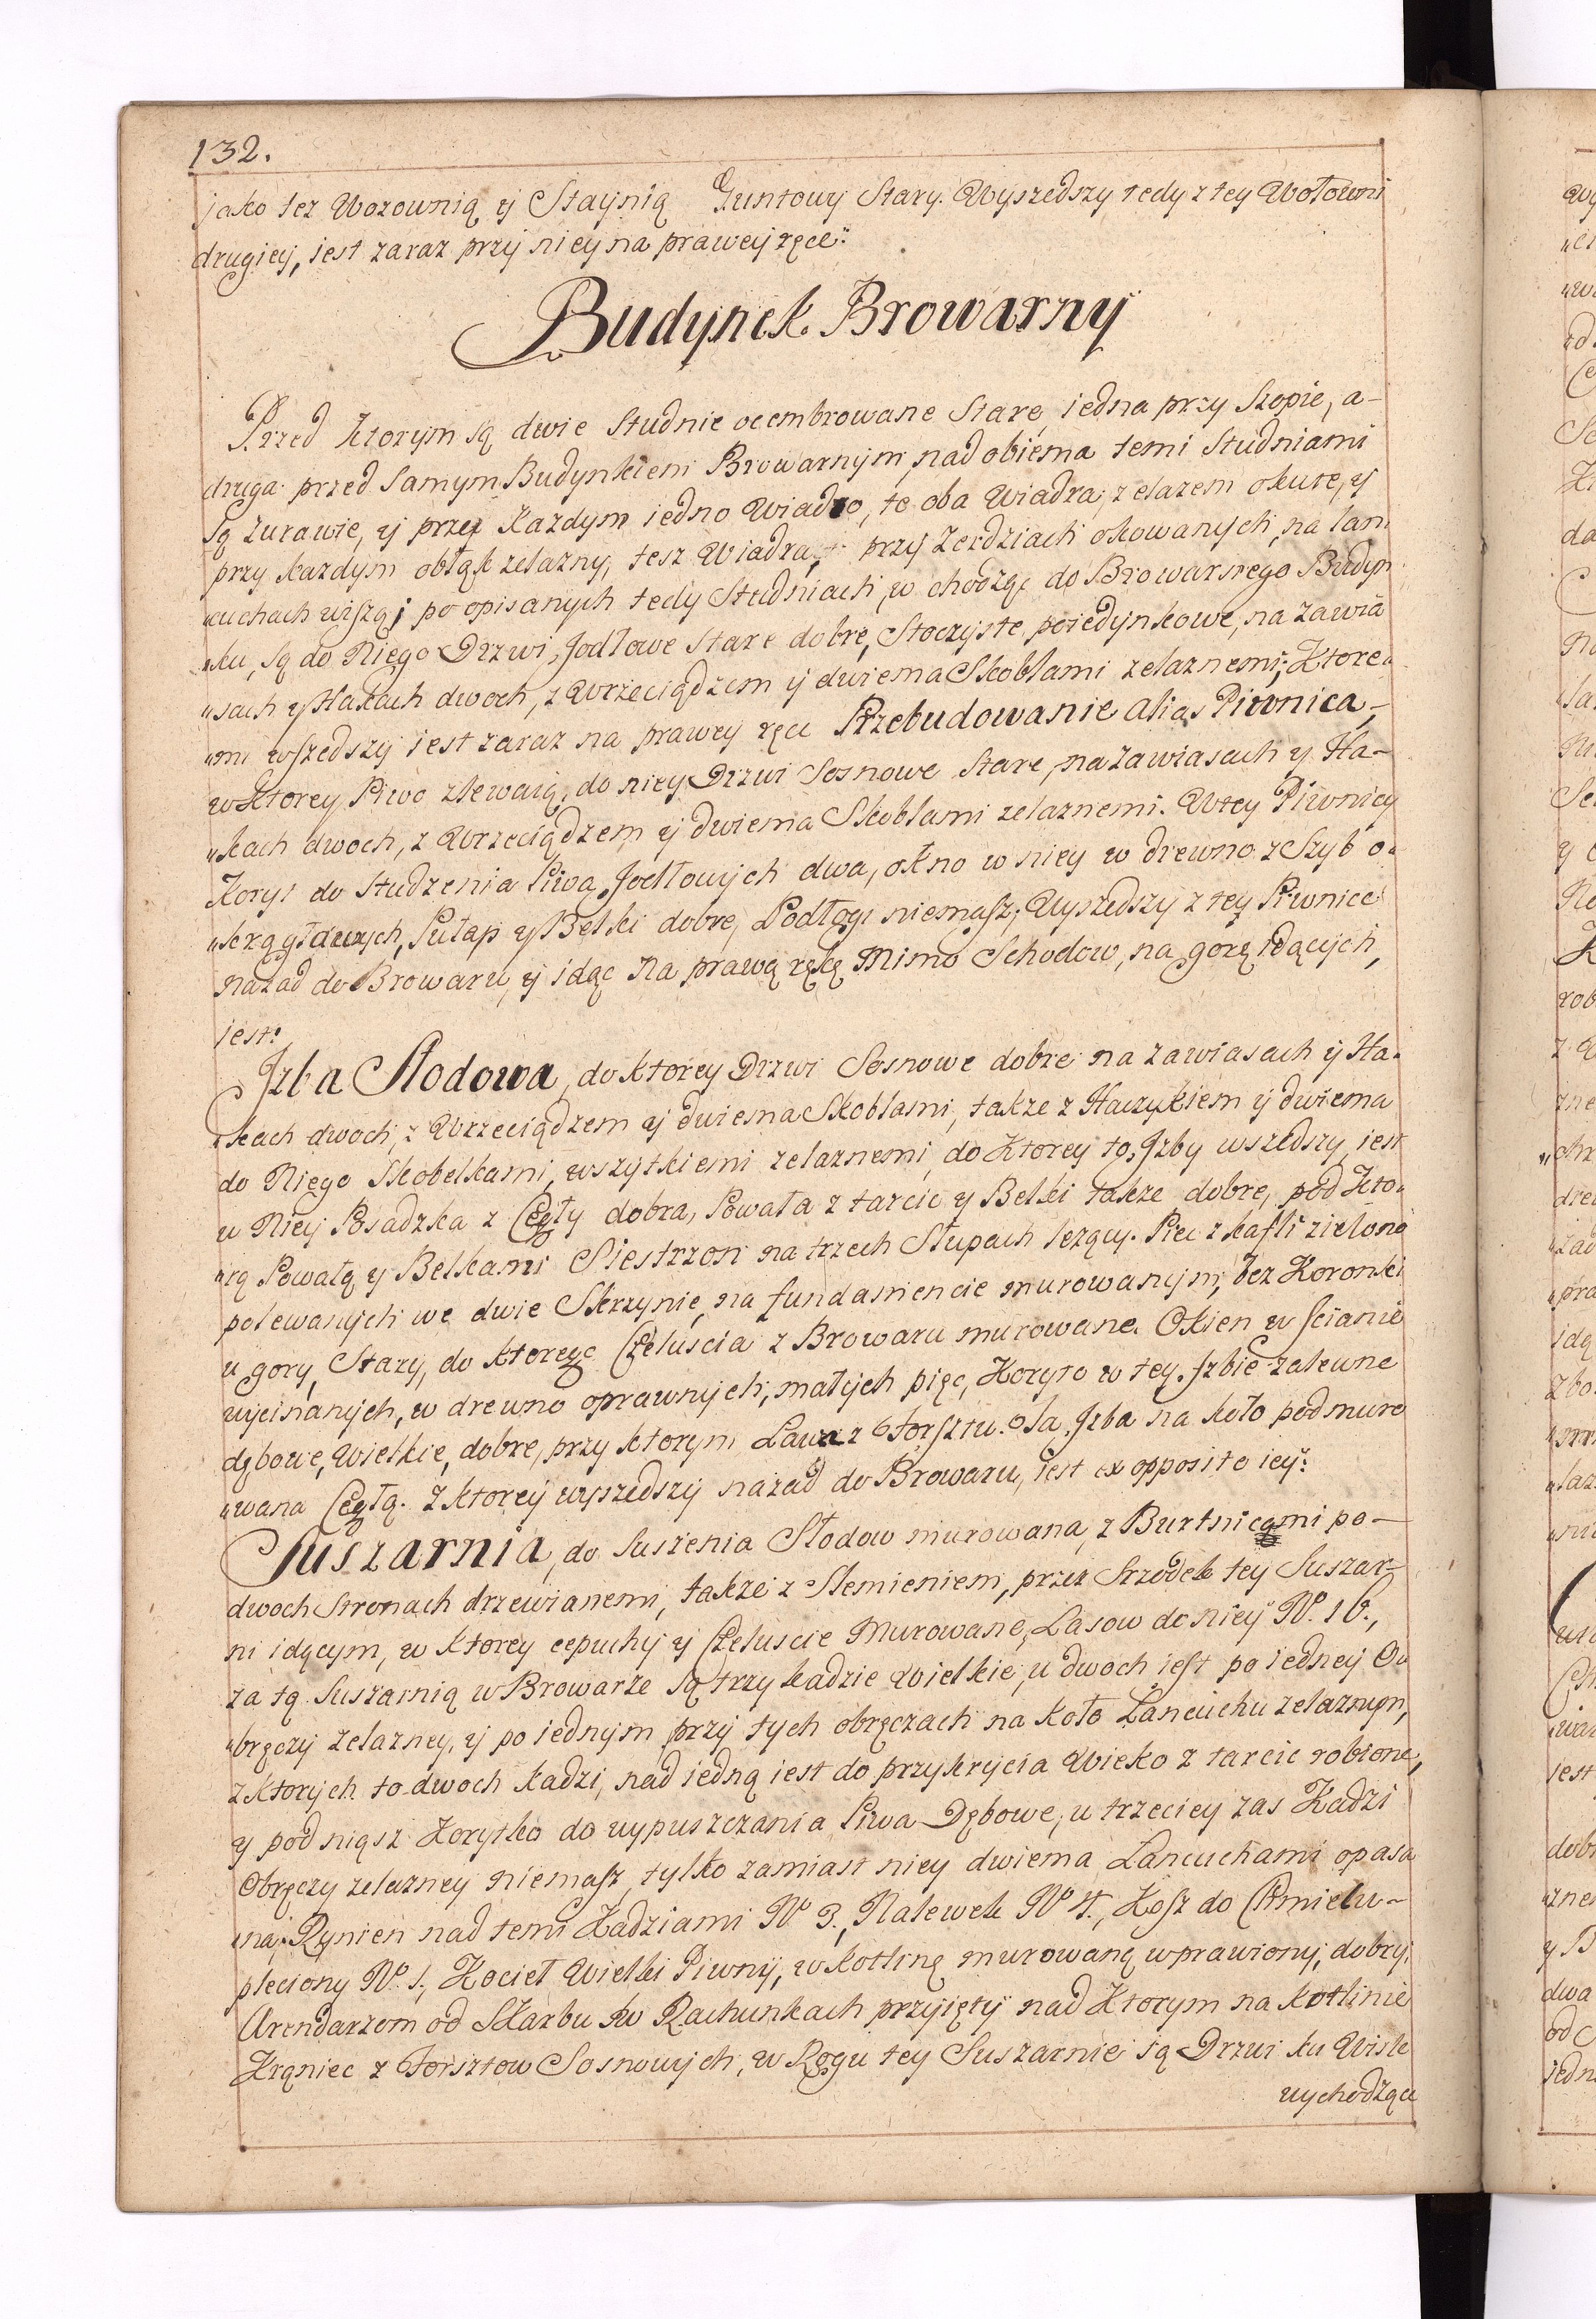 132.
jako tez Wozownią y Staynią Guntowy Stary. Wyszedszy tedy z tey Wołowni
drugiey, iest zaraz przy niey na prawey ręce:
Budynek Browarny
Przed Ktorym są dwie Studnie ocembrowane Stare, iedna przy Szopie, a-
druga przed Samym Budynkiem Browarnym, nad obiema temi Studniami
są Zurawie, y przy Kazdym iedno Wiadro, te oba Wiadra, zelazem okute, y
przy kazdym obłąk zelazny, tesz Wiadra, przy Zerdziach okowanych, na Łan
„cuchach wiszą; po opisanych tedy Studniach, w chodząc do Browarnego Budyn
„ku, są do Niego Drzwi, Jodłowe stare dobre, Stoczyste, poiedynkowe, na zawia
„sach y Hakach dwoch, z Wrzeciądzem y dwiema Skoblami zelaznemi; Ktore„
„mi wszedszy iest zaraz na prawey ręce Przebudowanie alias Piwnica,-
w Ktorey Piwo zlewaią, do niey Drzwi Sosnowe Stare, na zawiasach y Ha-
„kach dwoch, z Wrzeciądzem y dwiema Skoblami zelaznemi. W tey Piwnicy
Koryt do Studzenia Piwa Jodłowych dwa, okno w niey w drewno z Szyb o„
„krągłdwych, Pułap y Belki dobre, Podłogi niemasz; Wyszedszy z tey Piwnice
nazad do Browaru, y idąc Na prawą rękę Mimo Schodow, na gorę idących,
iest:
Jzba Słodowa, do ktorey Drzwi Sosnowe dobre na zawiasach y Ha„
„kach dwoch, z Wrzeciądzem y dwiema Skoblami, takze z Haczykiem y dwiema
do Niego Skobelkami, wszytkiemi zelaznemi, do Ktorey to, Jzby wszedszy, iest
w Niey Posadzka z Cegły dobra, Powała z tarcic y Belki takze dobre, pod Kto„
„rą Powałą y Belkami Siestrzon na trzech Słupach lezący. Piec z kafli zielono
polewanych we dwie Skrzynie, na fundamencie murowanym, bez Koronki
u gory, Stary, do ktorego Czeluscia z Browaru murowane. Okien w scianie
wycinanych, w drewno oprawnych, małych pięc, Koryto w tey Jzbie zalewne
dębowe, Wielkie, dobre, przy ktorym Ława z Forsztu. Ta Jzba na koło podmuro
„wana Cegłą. Z ktorey wyszedszy nazad do Browaru, iest ex opposito iey:
Suszarnia, do Suszenia Słodow murowana, z Burtnicami po-
dwoch Stronach drzewianemi, takze z Slemieniem, przez Srzodek tey Suszar-
ni idącym, w ktorey cepuchy y Czeluscie Murowane, Lasow do niey No. 16.,
za tą Suszarnią w Browarze są trzy kadzie Wielkie, u dwoch iest po iedney O„
„bręczy zelazney, y po iednym przy tych obręczach na koło Łancuchu zelaznym,
z ktorych to dwoch kadzi, nad iedną iest do przykrycia Wieko z tarcic robione,
y pod niąsz Korytko do wypuszczania Piwa Dębowe, u trzeciey zas Kadzi
Obręczy zelazney niemasz, tylko zamiast niey dwiema Łancuchami opasa
„na, Rynien nad temi Kadziami No 3., Nalewek No 4., Kosz do Chmielu-
pleciony No. 1., Kocieł Wielki Piwny, w kotlinę murowaną wprawiony, dobry,
Arendarzom od Skarbu w Rachunkach przyięty nad Ktorym na kotlinie
Krąniec z Forsztow Sosnowych, w Rogu tey Suszarnie są Drzwi ku Wisle
wychodzące